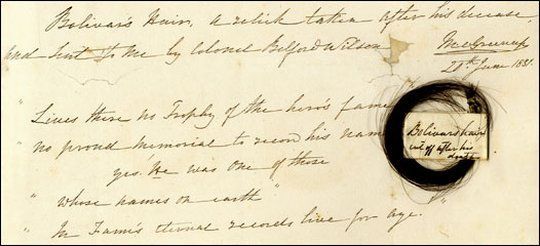 Bolivar's Hair, a relick taken after his decease,
and sent to me by Colonel Belford Wilson
21st June 1831.
"Lives there no Trophy of the hero's fame
"no proud memorial to record his name
yes. He was one of those
" whose names on earth "
" In Fame's eternal records live for aye. "
Bolivar's hair
cut off after his
death